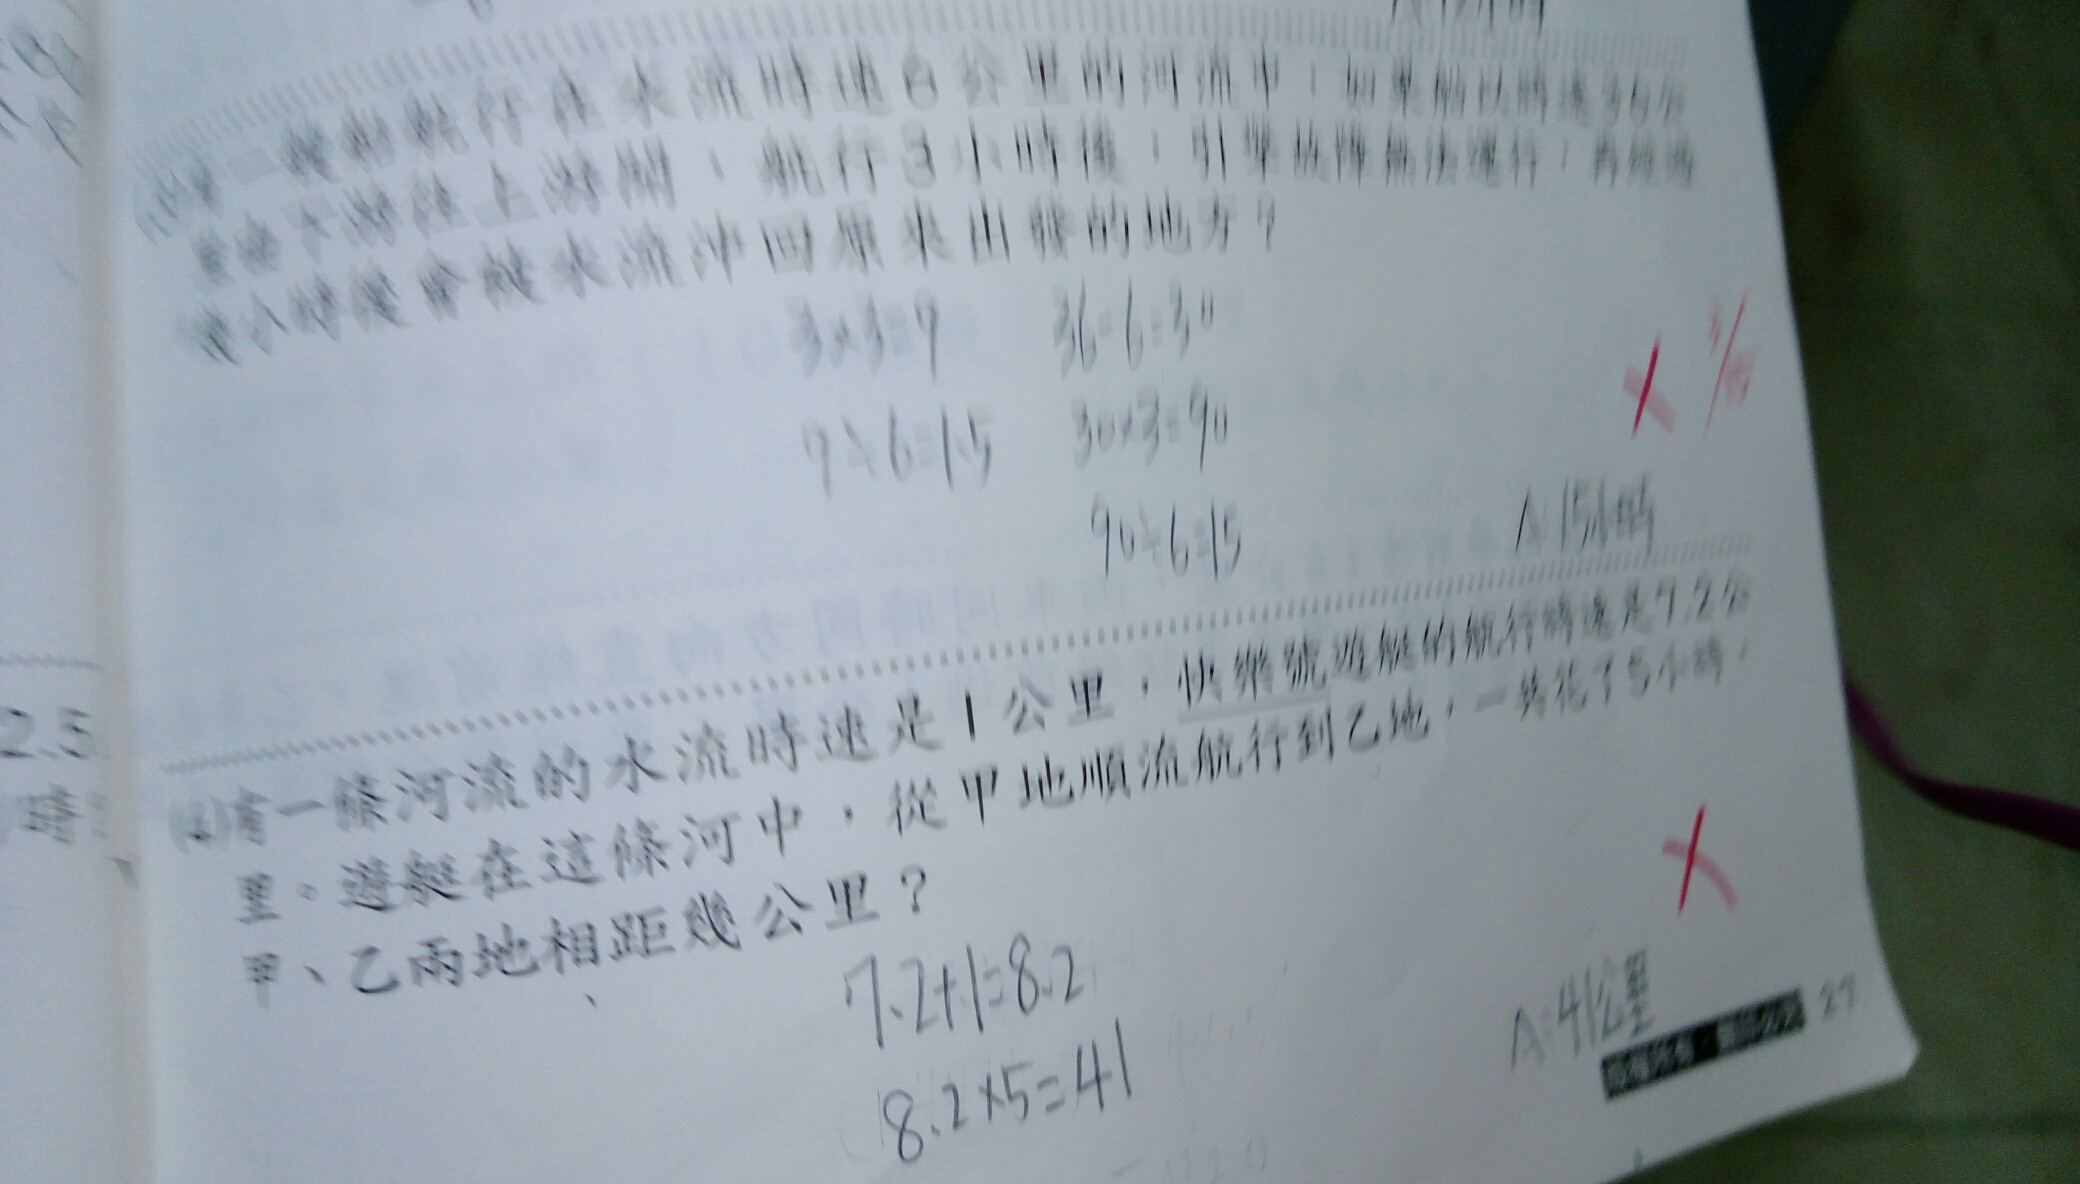 一艘船航行在水流時速6公里的河流中,如果船以時速36公
里從下游往上游開,航行3小時後,引擎故障無法運行,再經過
幾小時後會被水流沖回原來出發的地方?
3×3=9
36-6=30
9÷6=1.5
30×3=90
90÷6=15
A:15小時
(4)有一條河流的水流時速是1公里,快樂號遊艇的航行時速是7.2公
里。遊艇在這條河中,從甲地順流航行到乙地,一共花了5小時,
甲、乙兩地相距幾公里?
7.2+1=8.2
8.2×5=41
A:41公里
27
2.5